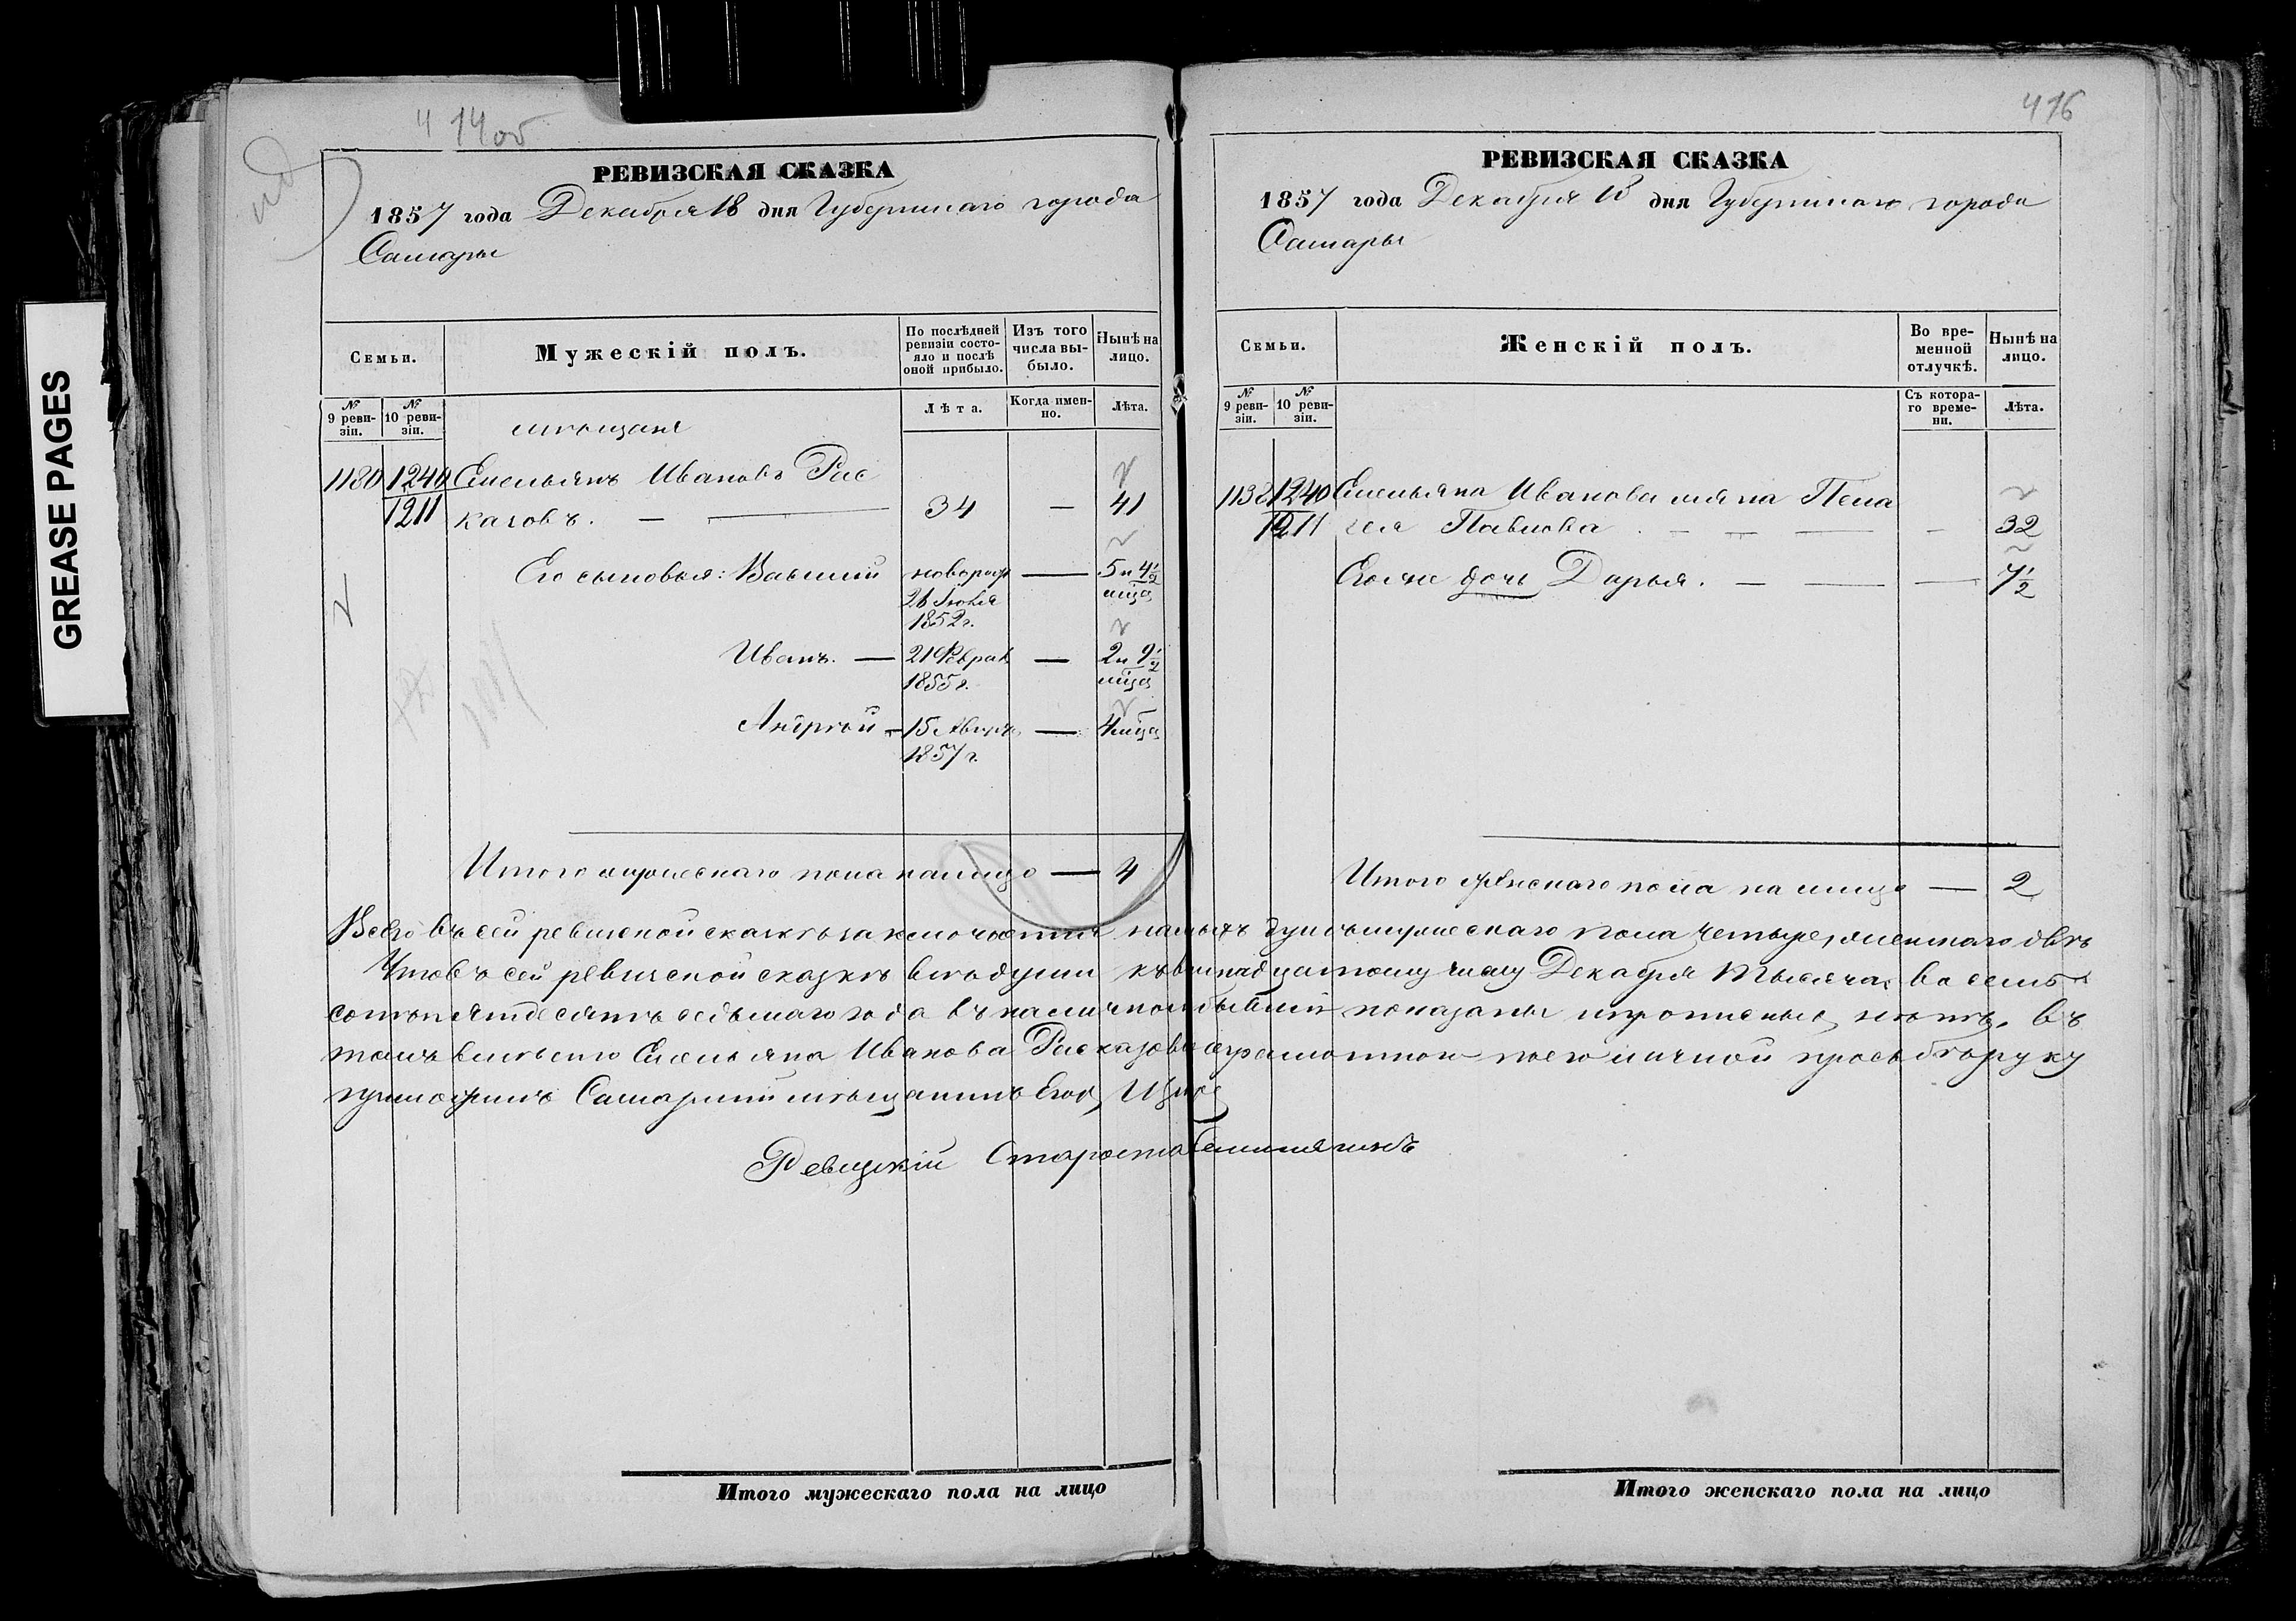 GREASE PAGES
414об
РЕВИЗСКАЯ СКАЗКА
1857 года Декабря 18 дня Губернскаго города
Самары
Семьи.
Мужескій полъ.
По послѣдней ревизіи состо-яло и послѣ оной прибыло.
Изъ того числа вы-было.
Нынѣ на лицо.
№ 9 реви-зіи.
№ 10 реви-зіи.
Лѣта.
Когда имен-но.
Лѣта.
мѣщане
1180 1240 Емельянъ Ивановъ Рас
1211 казовъ. — 34 — 41
Его сыновья: Василій новорож — 5 и 4½
28 Іюля мѣся
1852 г.
Иванъ. — 21 Феврал — 2 и 9½
1855 г. мѣся
Андрей — 15 Август — 4 мѣся
1857 г.
Итого мужескаго пола налицо — 4
416
РЕВИЗСКАЯ СКАЗКА
1857 года Декабря 18 дня Губернскаго города
Самары
Семьи.
Женскій полъ.
Во вре-менной отлучкѣ.
Нынѣ на лицо.
№ 9 реви-зіи.
№ 10 реви-зіи.
Съ котора-го време-ни.
Лѣта.
1240 Емельяна Иванова жена Пела
1211 гея Павлова . — — — — 32
Его же дочь Дарья. — — — 7½
Итого женскаго пола на лицо — 2
Всего въ сей ревизской сказкѣ заключается налицо душъ мужескаго пола четыре, женскаго двѣ
Что въ сей ревизской сказкѣ всѣ души къ восемнадцатому числу Декабря тысяча восемь
сотъ пятьдесятъ седьмаго года въ наличномъ бытіи показаны и прописныхъ нѣтъ, въ
томъ вмѣсто Емельяна Иванова Расказова неграмотного по его личной просьбѣ руку
приложилъ Самарскій мѣщанинъ Егоръ
Ревизскій Староста
Итого мужескаго пола на лицо
Итого женскаго пола на лицо